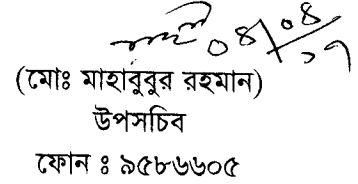 ০৪/০৪/১৭
(মোঃ মাহাবুবুর রহমান)
উপসচিব
ফোন ঃ ৯৫৮৬৬০৫